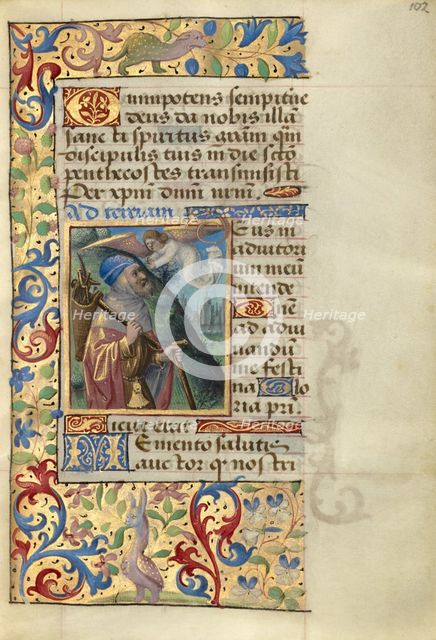 102
Omnipotens sempiterne
deus da nobis illam
sancti spiritus gratiam quam
discipulis tuis in die sancto
penthecostes transmisisti
Per xpm dnm nrm.
Ad terciam
Deus in
adiutori
um meu
intende
Dne
ad adiu
vandu
me festi
na Glo
ria pri.
Sicut erat
Memento salutis
auctor q nostri
Heritage
Heritage
Heritage
Heritage